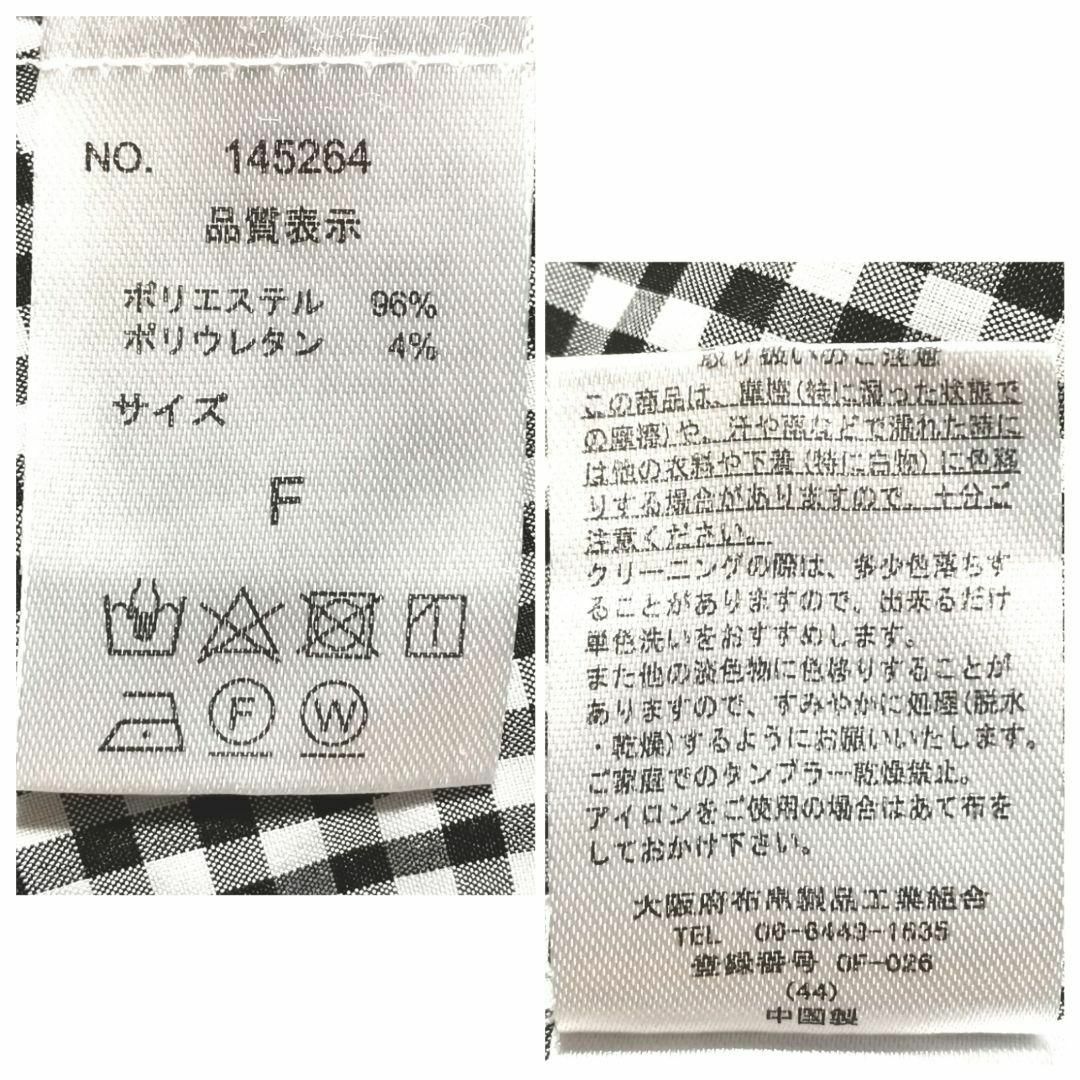 NO. 145264
品質表示
ポリエステル 96%
ポリウレタン 4%
サイズ
F
F
W
取り扱いのご注意
この商品は、摩擦(特に湿った状態で
の摩擦)や、汗や雨などで濡れた時に
は他の衣料や下着(特に白物)に色移
りする場合がありますので、十分ご
注意ください。
クリーニングの際は、多少色落ちす
ることがありますので、出来るだけ
単色洗いをおすすめします。
また他の淡色物に色移りすることが
ありますので、すみやかに処理(脱水
・乾燥)するようにお願いいたします。
ご家庭でのタンブラー乾燥禁止。
アイロンをご使用の場合はあて布を
しておかけ下さい。
大阪府布帛製品工業組合
TEL 06-6443-1635
登録番号 OF-026
(44)
中国製